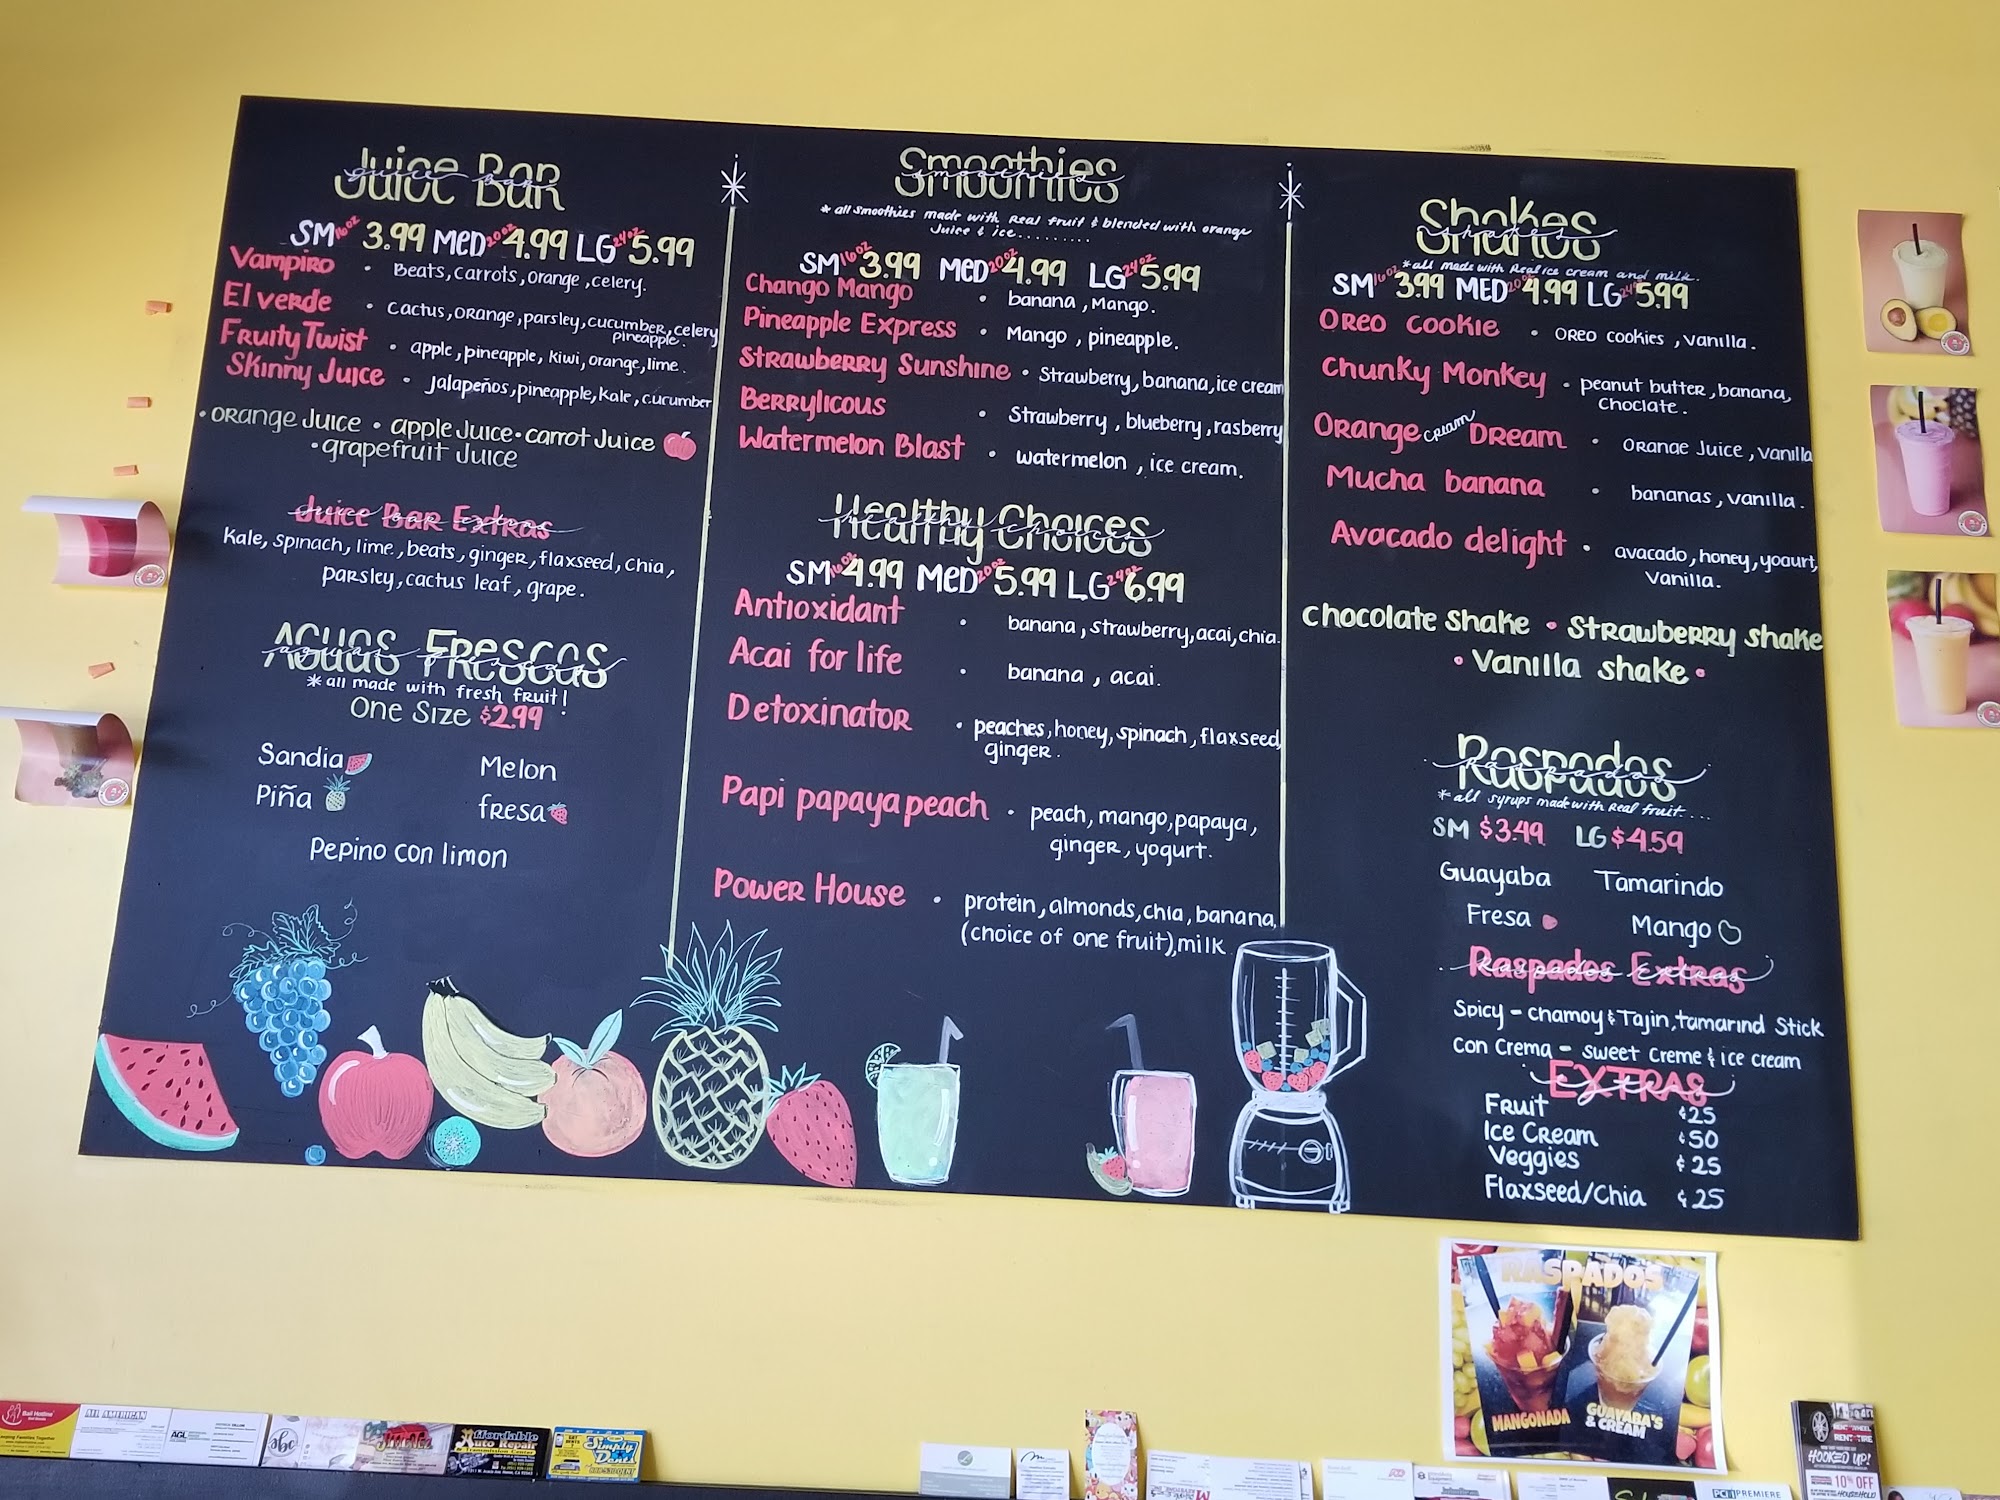 Juice Bar
juice bar
SM 16oz 3.99 MED 20oz 4.99 LG 24oz 5.99
Vampiro • Beats, carrots, orange, celery.
El verde • Cactus, orange, parsley, cucumber, celery
pineapple.
Fruity Twist • apple, pineapple, kiwi, orange, lime.
Skinny Juice • Jalapeños, pineapple, kale, cucumber
• orange Juice • apple Juice • carrot Juice
• grapefruit Juice
Juice Bar Extras
juice bar extras
Kale, spinach, lime, beats, ginger, flaxseed, chia,
parsley, cactus leaf, grape.
Aguas Frescas
aguas frescas
*all made with fresh fruit!
One Size $2.99
Sandia Melon
Piña fresa
Pepino con limon
Smoothies
smoothies
*all smoothies made with Real fruit & blended with orange
Juice & ice..........
SM 16oz 3.99 MED 20oz 4.99 LG 24oz 5.99
Chango Mango • banana, Mango.
Pineapple Express • Mango, pineapple.
Strawberry Sunshine • Strawberry, banana, ice cream
Berrylicous • Strawberry, blueberry, rasberry
Watermelon Blast • watermelon, ice cream.
Healthy Choices
healthy choices
SM 16oz 4.99 MED 20oz 5.99 LG 24oz 6.99
Antioxidant • banana, strawberry, acai, chia.
Acai for life • banana, acai.
Detoxinator • peaches, honey, spinach, flaxseed,
ginger.
Papi papaya peach • peach, mango, papaya,
ginger, yogurt.
Power House • protein, almonds, chia, banana,
(choice of one fruit), milk
Shakes
shakes
*all made with Real ice cream and milk.
SM 16oz 3.99 MED 20oz 4.99 LG 24oz 5.99
Oreo Cookie • Oreo cookies, vanilla.
Chunky Monkey • peanut butter, banana,
choclate.
Orange cream Dream • Orange Juice, vanilla
Mucha banana • bananas, vanilla.
Avacado delight • avacado, honey, yogurt,
vanilla.
Chocolate Shake • Strawberry shake
• Vanilla shake •
Raspados
raspados
*all syrups made with Real fruit....
SM $3.49 LG $4.59
Guayaba Tamarindo
Fresa Mango
Raspados Extras
raspados extras
Spicy - chamoy & Tajin, tamarind Stick
Con Crema - sweet Creme & ice cream
EXTRAS
extras
Fruit ¢25
Ice Cream ¢50
Veggies ¢25
Flaxseed/Chia ¢25
RASPADOS
MANGONADA
GUAYABA'S
& CREAM
Bail Hotline
ALL AMERICAN
AGL
abc
Affordable
Auto Repair
Simply
Dent
HOOKED UP!
10% OFF
PCI PREMIERE